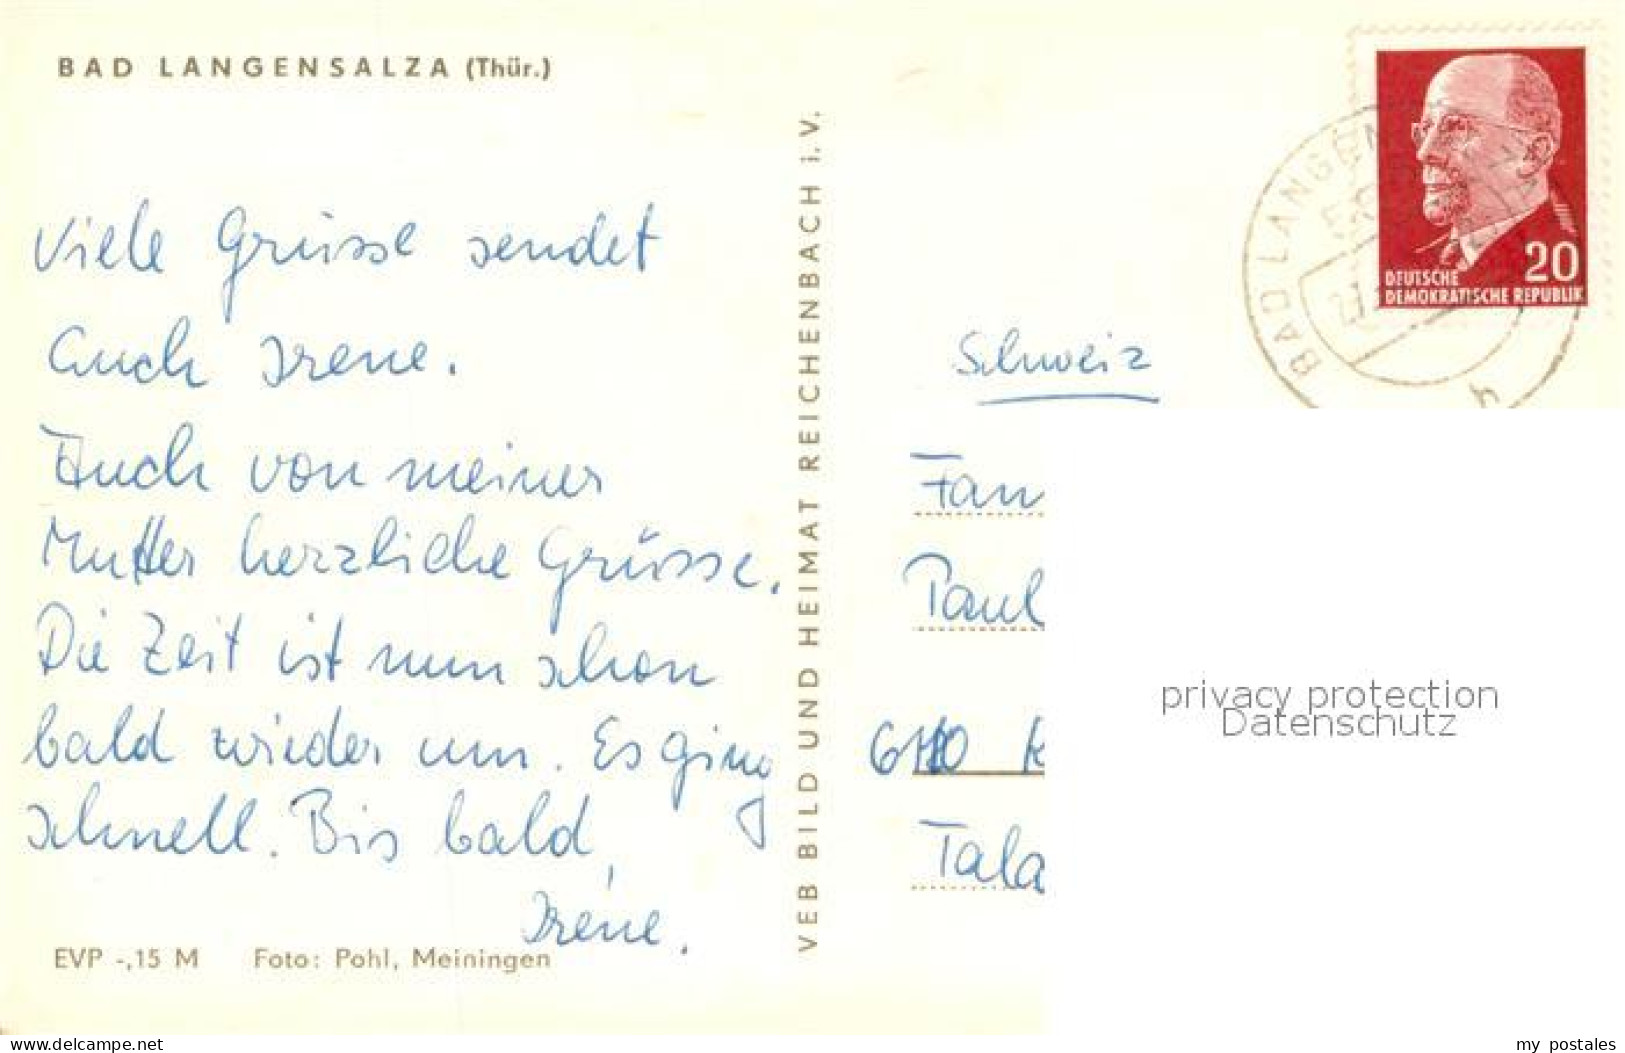 BAD LANGENSALZA (Thür.)
Viele Grüsse sendet
Euch Irene.
Auch von meiner
Mutter herzliche Grüsse.
Die Zeit ist nun schon
bald wieder um. Es ging
schnell. Bis bald,
Irene.
EVP -,15 M Foto: Pohl, Meiningen
VEB BILD UND HEIMAT REICHENBACH i. V.
20
DEUTSCHE
DEMOKRATISCHE REPUBLIK
BAD LANGEN
Schweiz
Fam
Paul
6110 K
Tala
privacy protection
Datenschutz
www.delcampe.net
my postales